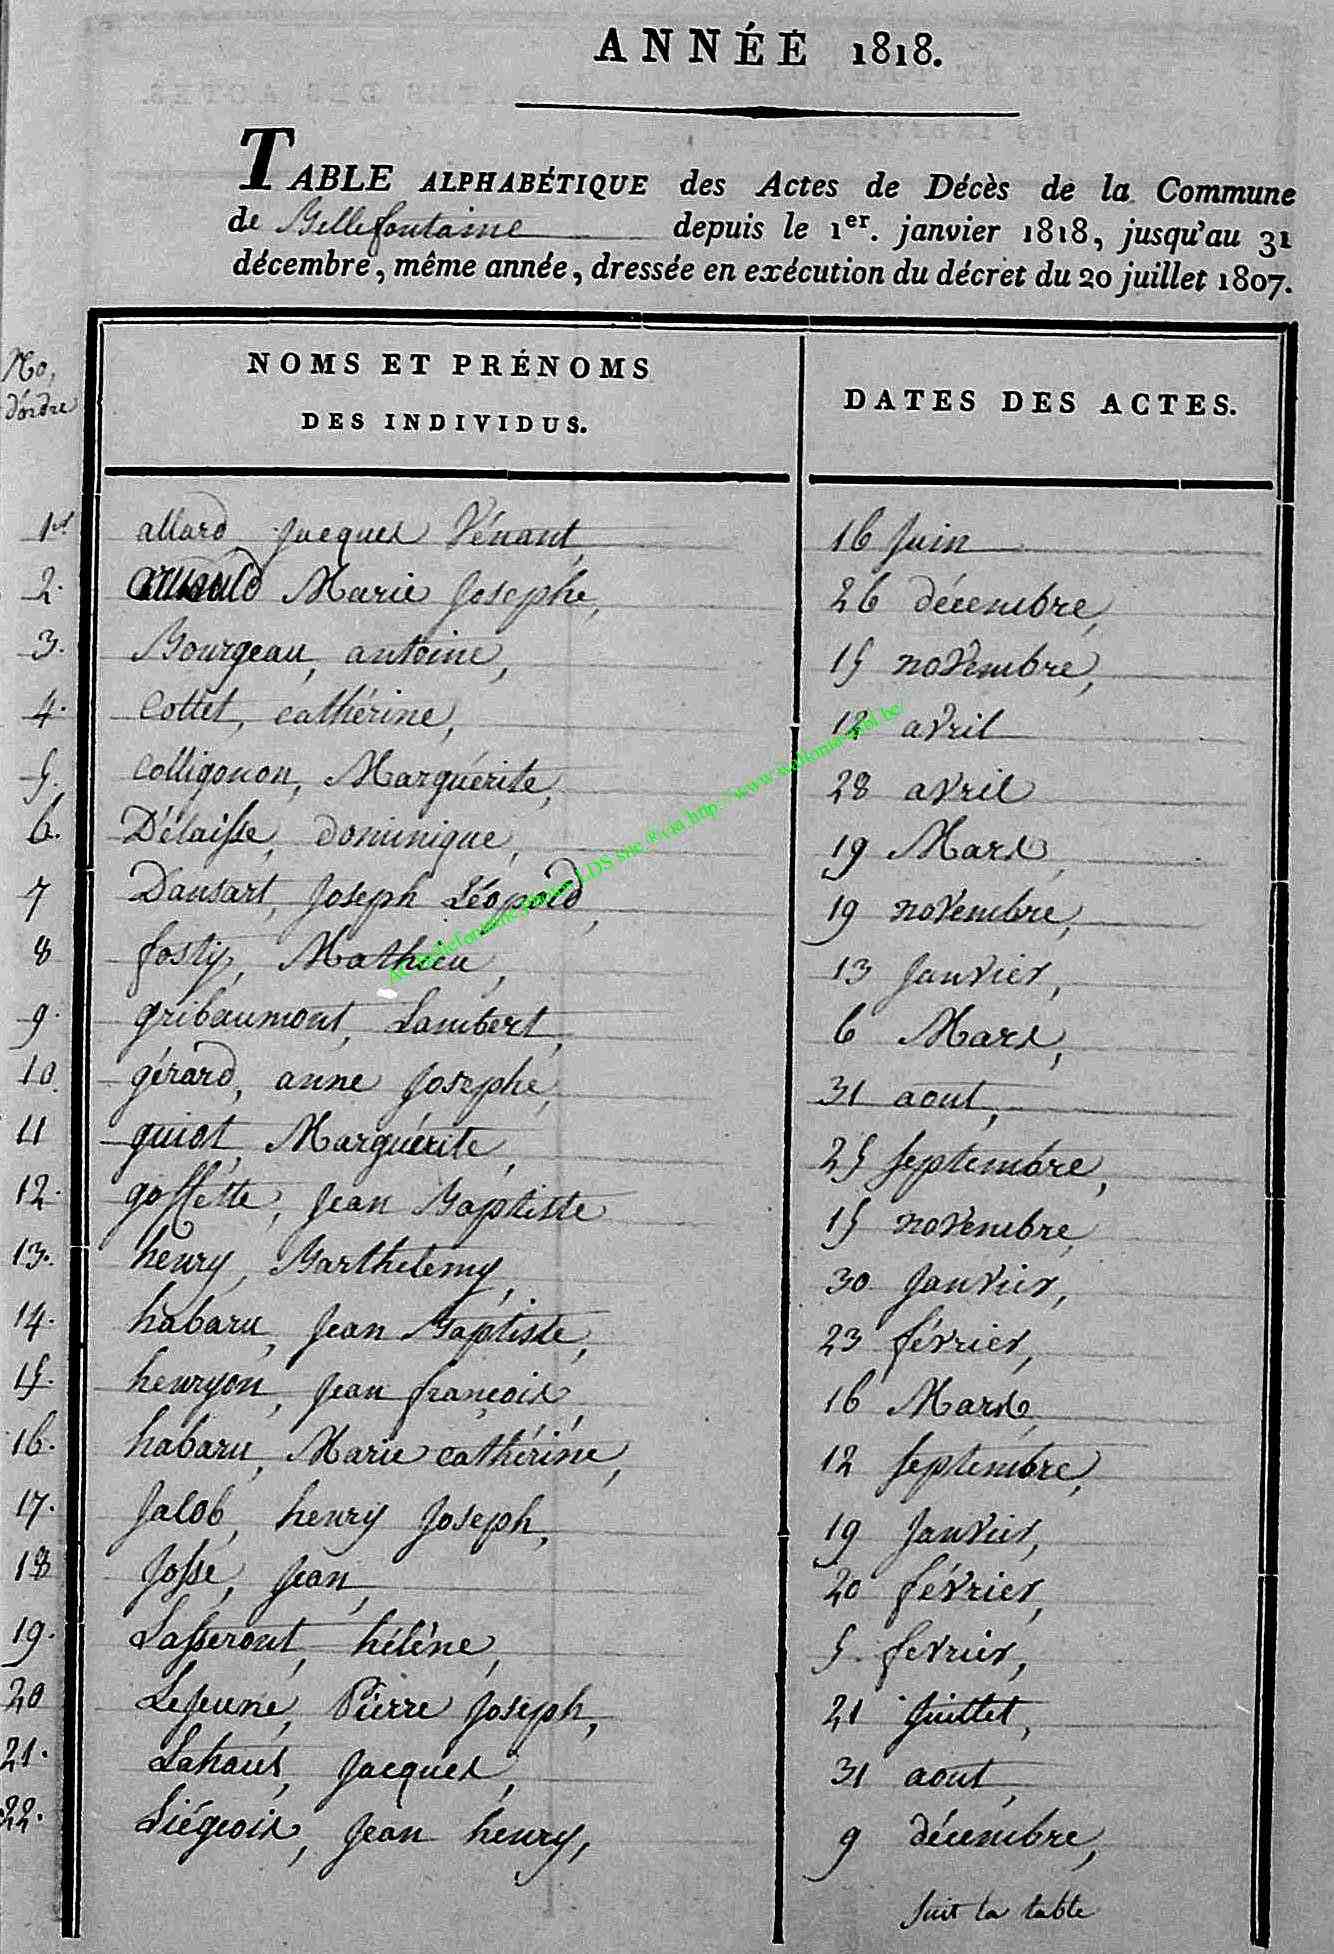 ANNÉE 1818.
TABLE ALPHABÉTIQUE des Actes de Décès de la Commune
de Bellefontaine depuis le 1er. janvier 1818, jusqu'au 31
décembre, même année, dressée en exécution du décret du 20 juillet 1807.
No. d'ordre
NOMS ET PRÉNOMS
DES INDIVIDUS.
DATES DES ACTES.
1er allard Jacques Vénant, 16 Juin
2. arnould Marie Josephe, 26 décembre,
3. Bourgeau, antoine, 15 novembre,
4. Cottet, cathérine, 12 avril
5. Colligonon, Marguérite, 28 avril
6. Délaisse, dominique, 19 Mars,
7 Dansart, Joseph Léopold, 19 novembre,
8 fosty, Mathieu, 13 Janvier,
9. gribaumont, Lambert, 6 Mars,
10. gérard, anne Josephe, 31 aout,
11 guiot, Marguérite, 25 septembre,
12. goffette, Jean Baptiste 15 novembre,
13. henry, Barthelemy, 30 Janvier,
14. habaru, Jean Baptiste, 23 février,
15. henryon, Jean françois, 16 Mars,
16. habaru, Marie cathérine, 12 septembre,
17. Jacob, henry Joseph, 19 Janvier,
18 Josse, Jean, 20 février,
19. Lasseront, hélène, 5 fevrier,
20 Lejeune, Pierre Joseph, 21 Juillet,
21. Lahaut, Jacques, 31 aout,
22. Liégeois, Jean henry, 9 décembre,
suit la table